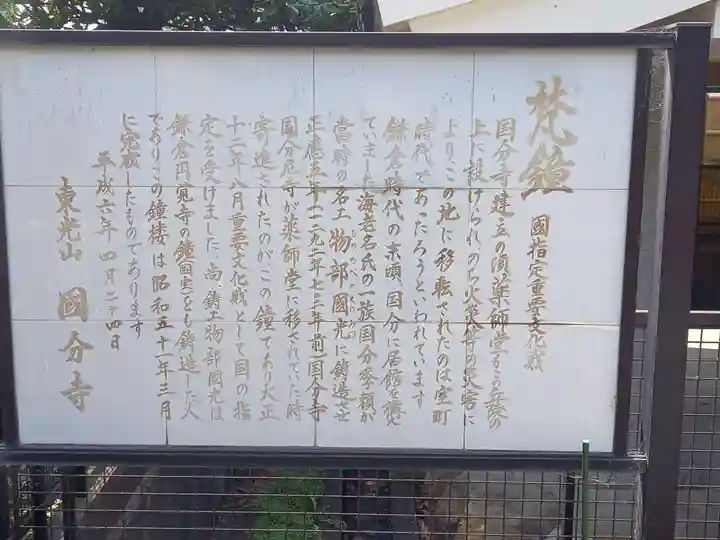 梵鐘
國指定重要文化戝
国分寺建立の頃、薬師堂もこの丘の
上に設けられ、のち火災等の災害に
より、この地に移転されたのは室町
時代であったろうといわれています
鎌倉時代の末頃、国分に居館を構え
ていました海老名氏の一族国分季頼が
當時の名工物部國光に鋳造させ
正應五年(一二九二年七〇三年前)国分寺
国分尼寺が薬師堂に移されていた時
寄進されたのがこの鐘であり大正
十二年八月重要文化戝として国の指
定を受けました、尚、鋳工物部國光は
鎌倉円覚寺の鐘(国宝)をも鋳造した人
でありこの鐘楼は昭和五十一年三月
に完成したものであります
平成六年四月二十四日
東光山 國分寺